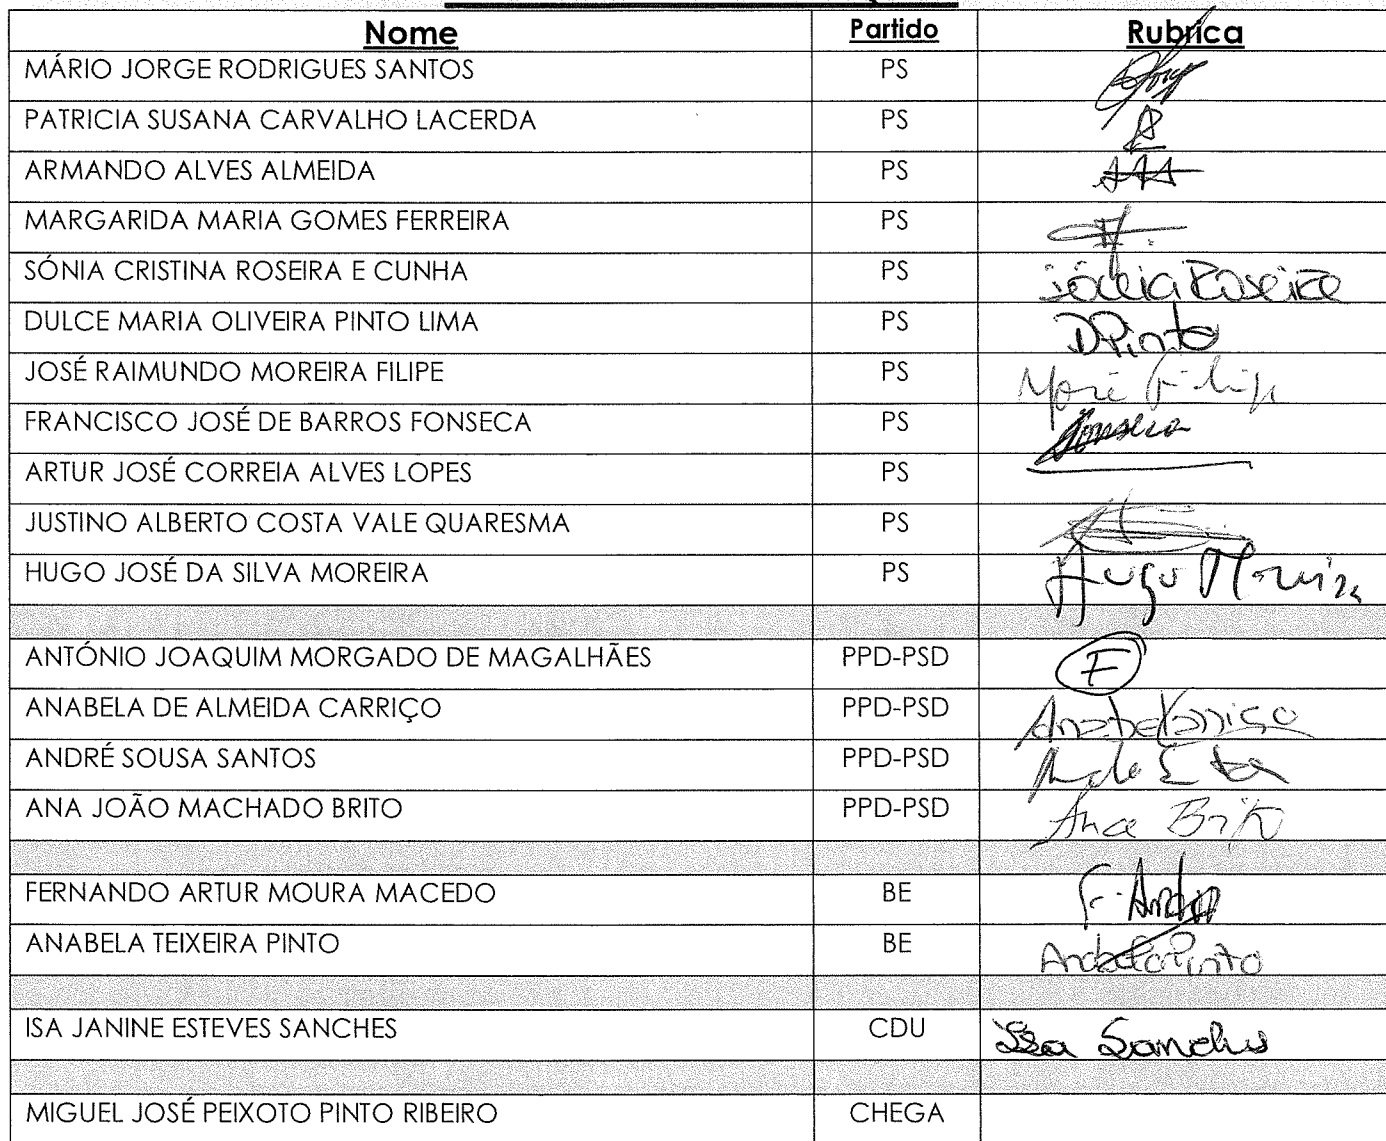 Nome Partido Rubrica
MÁRIO JORGE RODRIGUES SANTOS PS
PATRICIA SUSANA CARVALHO LACERDA PS
ARMANDO ALVES ALMEIDA PS AAA
MARGARIDA MARIA GOMES FERREIRA PS
SÓNIA CRISTINA ROSEIRA E CUNHA PS Sónia Roseira
DULCE MARIA OLIVEIRA PINTO LIMA PS DPinto
JOSÉ RAIMUNDO MOREIRA FILIPE PS
FRANCISCO JOSÉ DE BARROS FONSECA PS Fonseca
ARTUR JOSÉ CORREIA ALVES LOPES PS
JUSTINO ALBERTO COSTA VALE QUARESMA PS
HUGO JOSÉ DA SILVA MOREIRA PS Hugo Moreira
ANTÓNIO JOAQUIM MORGADO DE MAGALHÃES PPD-PSD F
ANABELA DE ALMEIDA CARRIÇO PPD-PSD Anabela Carriço
ANDRÉ SOUSA SANTOS PPD-PSD
ANA JOÃO MACHADO BRITO PPD-PSD Ana Brito
FERNANDO ARTUR MOURA MACEDO BE
ANABELA TEIXEIRA PINTO BE Anabela Pinto
ISA JANINE ESTEVES SANCHES CDU Isa Sanches
MIGUEL JOSÉ PEIXOTO PINTO RIBEIRO CHEGA